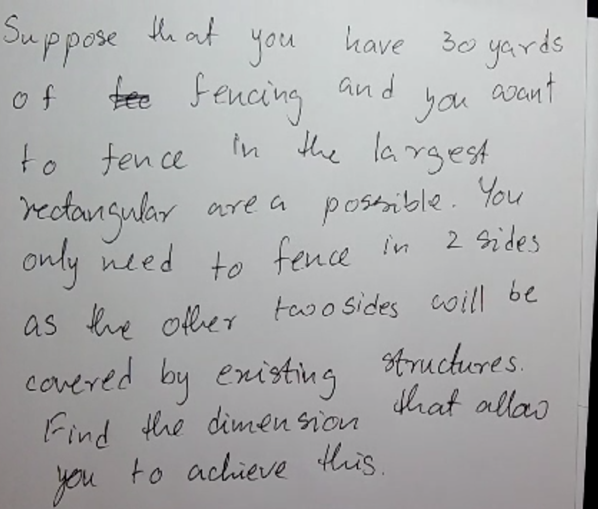 Suppose that you have 30 yards
of fencing and you want
to fence in the largest
rectangular area possible. You
only need to fence in 2 sides
as the other two sides will be
covered by existing structures.
Find the dimension that allow
you to achieve this.